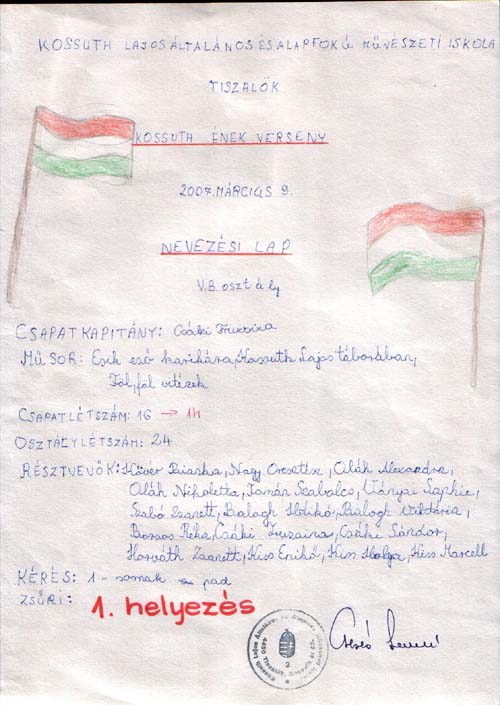 KOSSUTH LAJOS ÁLTALÁNOS ÉS ALAPFOKÚ MŰVÉSZETI ISKOLA
TISZALÖK
KOSSUTH ÉNEK VERSENY
2007. MÁRCIUS 9.
NEVEZÉSI LAP
V.B. osztály
CSAPATKAPITÁNY: Csáki Fruzsina
MŰSOR: Esik eső karikára, Kossuth Lajos táborában,
Föl, föl vitézek
CSAPATLÉTSZÁM: 16 → 14
OSZTÁLYLÉTSZÁM: 24
RÉSZTVEVŐK: Hüver Bianka, Nagy Oláh Alexandra,
Oláh Nikoletta, Szabolcs, Sophie,
Szabó Zsanett, Balogh Ildikó, Balogh Viktória,
Borsos Réka, Csáki Fruzsina, Csáki Sándor,
Horváth Zsanett, Kiss Enikő, Kiss Holga, Kiss Marcell
KÉRÉS: 1 - sornak a pad
ZSŰRI: 1. helyezés